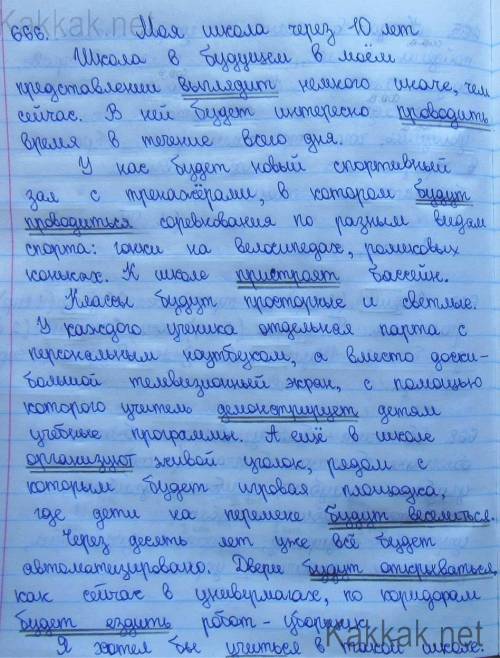 Kakkak.net
666. Моя школа через 10 лет
Школа в будущем в моём
представлении выглядит немного иначе, чем
сейчас. В ней будет интересно проводить
время в течение всего дня.
У нас будет новый спортивный
зал с тренажёрами, в котором будут
проводиться соревнования по разным видам
спорта: гонки на велосипедах, роликовых
коньках. К школе пристроят бассейн.
Классы будут просторные и светлые.
У каждого ученика отдельная парта с
персональным ноутбуком, а вместо доски-
большой телевизионный экран, с помощью
которого учитель демонстрирует детям
учебные программы. А ещё в школе
организуют живой уголок, рядом с
которым будет игровая площадка,
где дети на перемене будут веселиться.
Через десять лет уже всё будет
автоматизировано. Двери будут открываться,
как сейчас в универмагах, по коридорам
будет ездить робот-уборщик.
Я хотел бы учиться в такой школе.
Kakkak.net